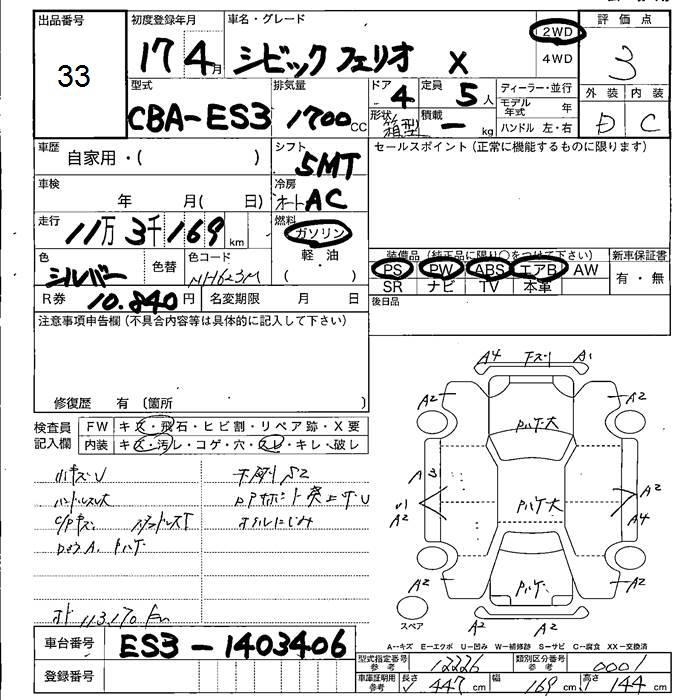 出品番号
33
初度登録年月
17 4月
車名・グレード
シビック フェリオ X
2WD
4WD
評価点
3
型式
CBA-ES3
排気量
1700CC
ドア
4
形状
箱型
定員
5人
積載
ー kg
ディーラー・並行
モデル年式 年
ハンドル 左・右
外装 内装
D C
車歴
自家用・( )
シフト
5MT
セールスポイント(正常に機能するものに限ります)
車検
年 月( 日)
冷房
オート AC
走行
11万3千169km
燃料
ガソリン
軽・油
( )
色
シルバー
色替
色コード
NH623M
装備品(純正品に限り○をつけて下さい)
PS PW ABS エアB AW
SR ナビ TV 本革
新車保証書
有・無
R券 10.840円
名変期限 月 日
後日品
注意事項申告欄(不具合内容等は具体的に記入して下さい)
修復歴 有(箇所 )
検査員記入欄
FW キズ・飛石・ヒビ割・リペア跡・X要
内装 キズ・汚レ・コゲ・穴・スレ・キレ・破レ
小キズU
ハンドルスレ大
下廻りS2
オイルにじみ
113,170km
A4 下スリ A1
A2 A2
A3
A2
A2
A4
A2 A2
A2 A2
スペア
A--キズ E--エクボ U--凹み W--補修跡 S--サビ C--腐食 XX--交換済
車台番号
ES3-1403406
登録番号
型式指定番号 参考
12226
類別区分番号 参考
0001
車庫証明用 参考
長さ 447cm
幅 169cm
高さ 144cm